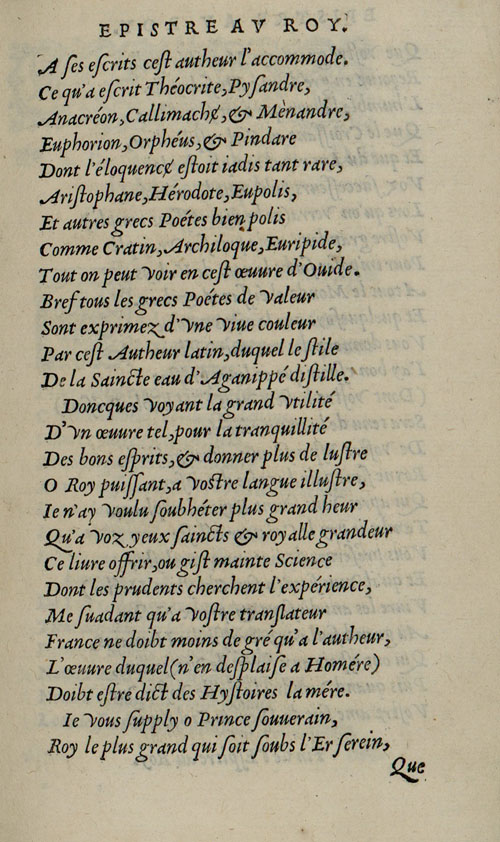 EPISTRE AV ROY.
A ses escrits cest autheur l'accommode.
Ce qu'a escrit Théocrite, Pysandre,
Anacréon, Callimaché, & Mènandre,
Euphorion, Orphéus, & Pindare
Dont l'éloquencé estoit iadis tant rare,
Aristophane, Hérodote, Eupolis,
Et autres grecs Poétes bien polis
Comme Cratin, Archiloque, Euripide,
Tout on peut voir en cest œuure d'Ouide.
Bref tous les grecs Poétes de valeur
Sont exprimez d'vne viue couleur
Par cest Autheur latin, duquel le stile
De la Saincte eau d'Aganippé distille.
Doncques voyant la grand vtilité
D'vn œuure tel, pour la tranquillité
Des bons esprits, & donner plus de lustre
O Roy puissant, a vostre langue illustre,
Ie n'ay voulu soubhéter plus grand heur
Qu'a voz yeux saincts & royalle grandeur
Ce liure offrir, ou gist mainte Science
Dont les prudents cherchent l'expérience,
Me suadant qu'a vostre translateur
France ne doibt moins de gré qu'a l'autheur,
L'œuure duquel (n'en desplaise a Homére)
Doibt estre dict des Hystoires la mére.
Ie vous supply o Prince souuerain,
Roy le plus grand qui soit soubs l'Er serein,
Que